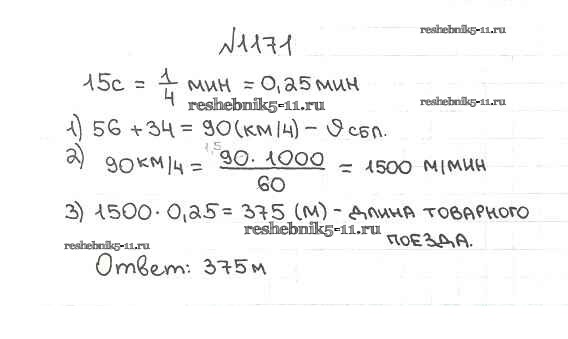 reshebnik5-11.ru
№1171
15с = 1/4 мин = 0,25 мин
reshebnik5-11.ru
reshebnik5-11.ru
1) 56 + 34 = 90 (км/ч) – υ сбл.
2) 90 км/ч = 90 · 1000 / 60 = 1500 м/мин
1,5
3) 1500 · 0,25 = 375 (м) – длина товарного
reshebnik5-11.ru
поезда.
reshebnik5-11.ru
Ответ: 375 м